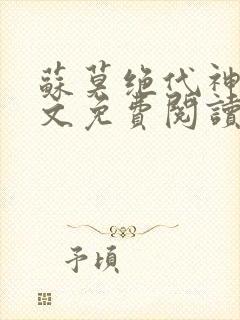 蘇莫絕代神
文免費閱讀
予頃